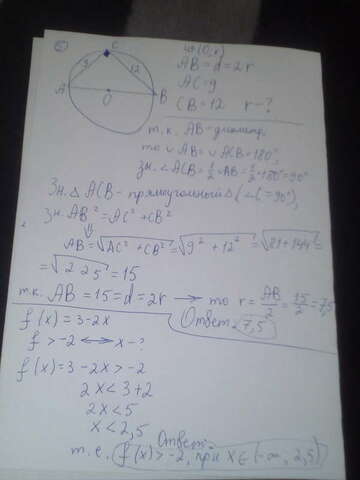 5)
C
9
12
A
O
B
ω(O, r)
AB = d = 2r
AC = 9
CB = 12 r - ?
т.к. AB - диаметр
то ∪AB = ∪ACB = 180°,
зн. ∠ACB = 1/2 ∪AB = 1/2 · 180° = 90°
Зн. △ACB - прямоугольный △ (∠C = 90°),
Зн. AB² = AC² + CB²
⇓
AB = √AC² + CB² = √9² + 12² = √81 + 144 =
= √225 = 15
т.к. AB = 15 = d = 2r → то r = AB/2 = 15/2 = 7,5
Ответ: 7,5
f(x) = 3 - 2x
f > -2 ⟷ x - ?
f(x) = 3 - 2x > -2
2x < 3 + 2
2x < 5
x < 2,5
Ответ:
т.е. f(x) > -2, при x ∈ (-∞, 2,5)